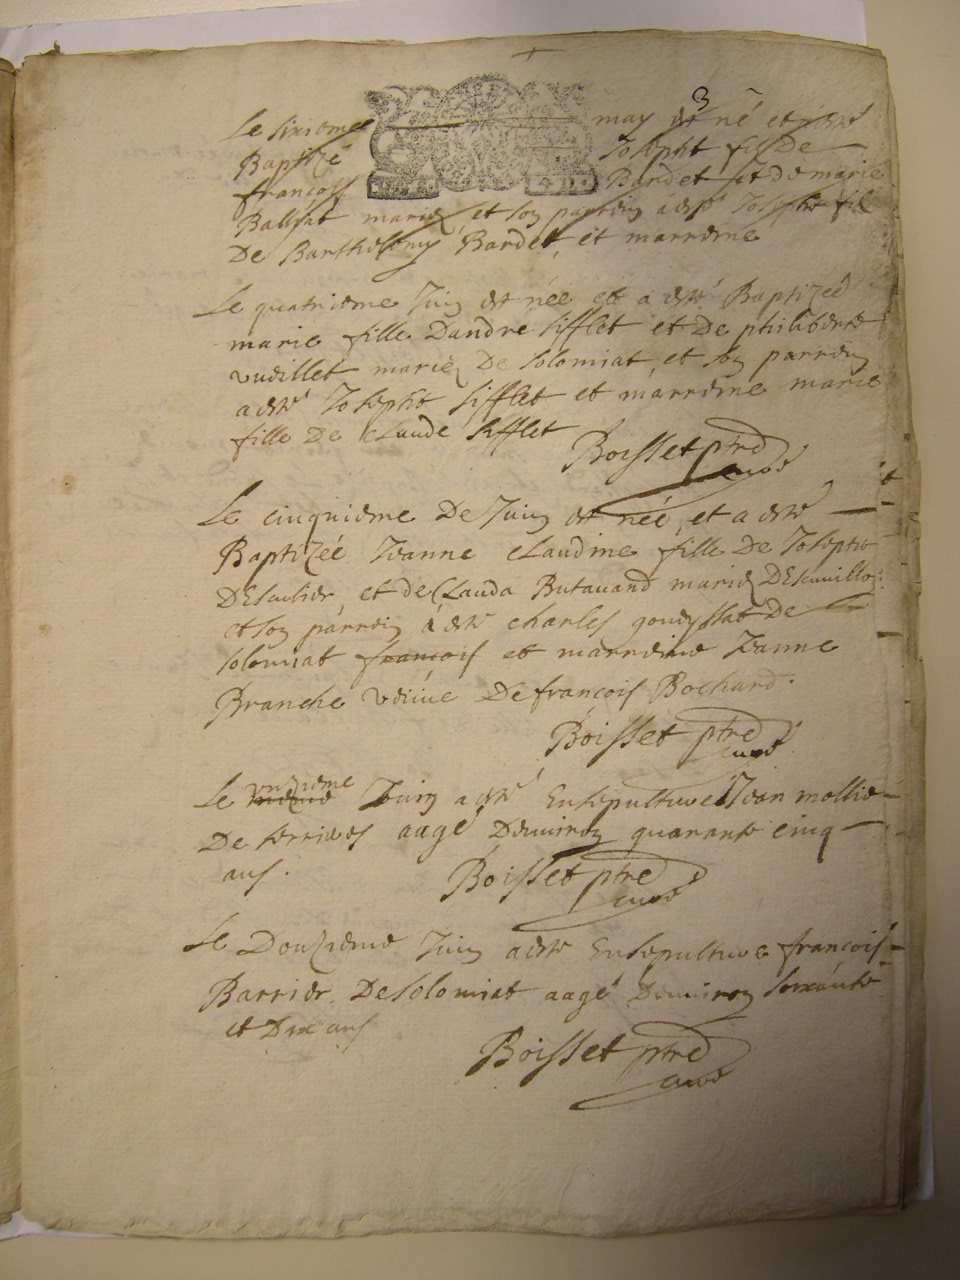 3
Le sixieme may est né et a esté
Baptizé Joseph fils De
françois Bardet et de marie
Ballat mariez et son parrein a esté Joseph fil
De Barthelemy Bardet, et marreine
Le quatrieme Juin est née et a esté Baptizeé
marie fille Dandre sifflet et De philiberte
vudillet mariez De solomiat, et son parrein
a esté Joseph sifflet et marreine marie
fille De claude sifflet
Boisset ptre
curé
Le cinquieme De Juin est née, et a esté
Baptizeé Jeanne claudine fille De Joseph
et de Clauda Butavand mariez
et son parrein a esté charles goudyssat De
solomiat francois et marreine Jeanne
Branche veuve De françois Bochard.
Boisset ptre
curé
Le unzieme Juin a esté Ensepulture Jean mollie
De serrieres aagé Denviron quarante cinq
ans.
Boisset ptre
curé
Le Douzieme Juin a esté Ensepulture françois
Barrier De solomiat aagé Denviron soixante
et Dix ans
Boisset ptre
curé